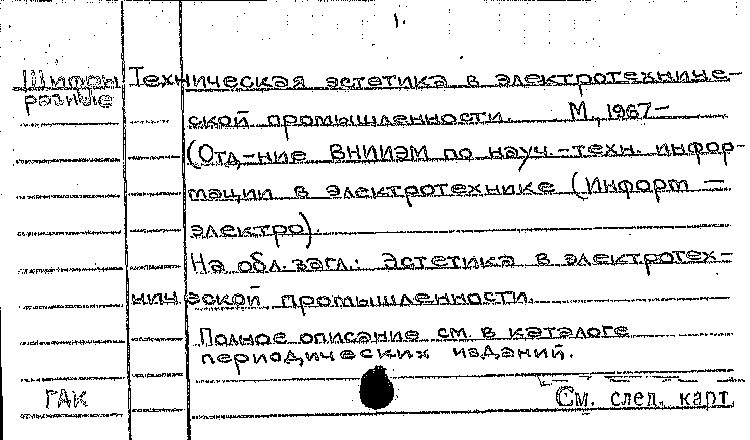 1.
Шифры Техническая эстетика в электротехниче-
разные
ской промышленности. М., 1967–
(Отд-ние ВНИИЭМ по науч.-техн. инфор-
мации в электротехнике (Информ –
электро).
На обл. загл.: Эстетика в электротех-
нической промышленности.
Полное описание см. в каталоге
периодических изданий.
ГАК
См. след. карт.